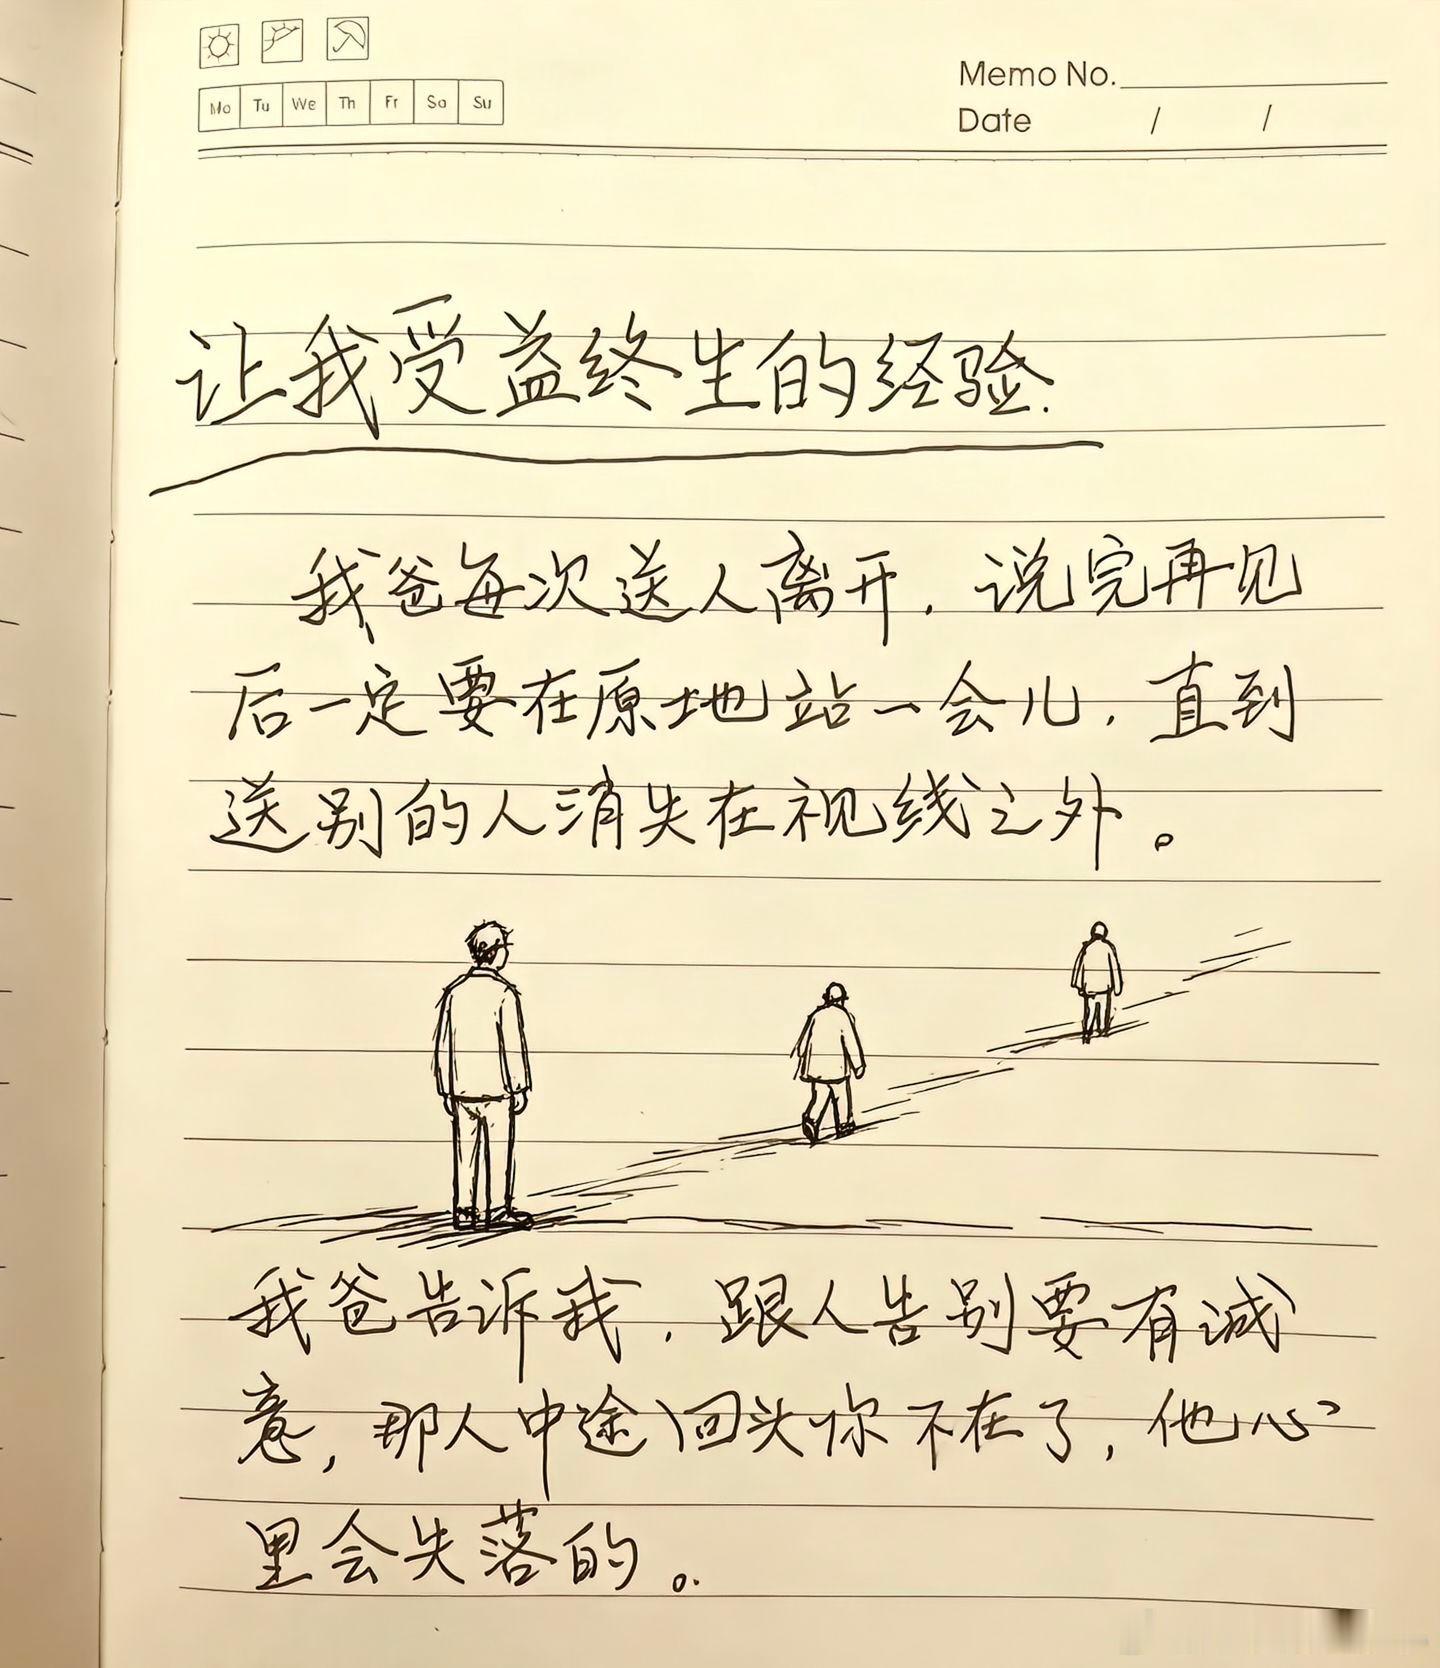 Mo Tu We Th Fr Sa Su
Memo No.
Date / /
让我受益终生的经验.
我爸每次送人离开，说完再见
后一定要在原地站一会儿，直到
送别的人消失在视线之外。
我爸告诉我，跟人告别要有诚
意，那人中途回头你不在了，他心
里会失落的。